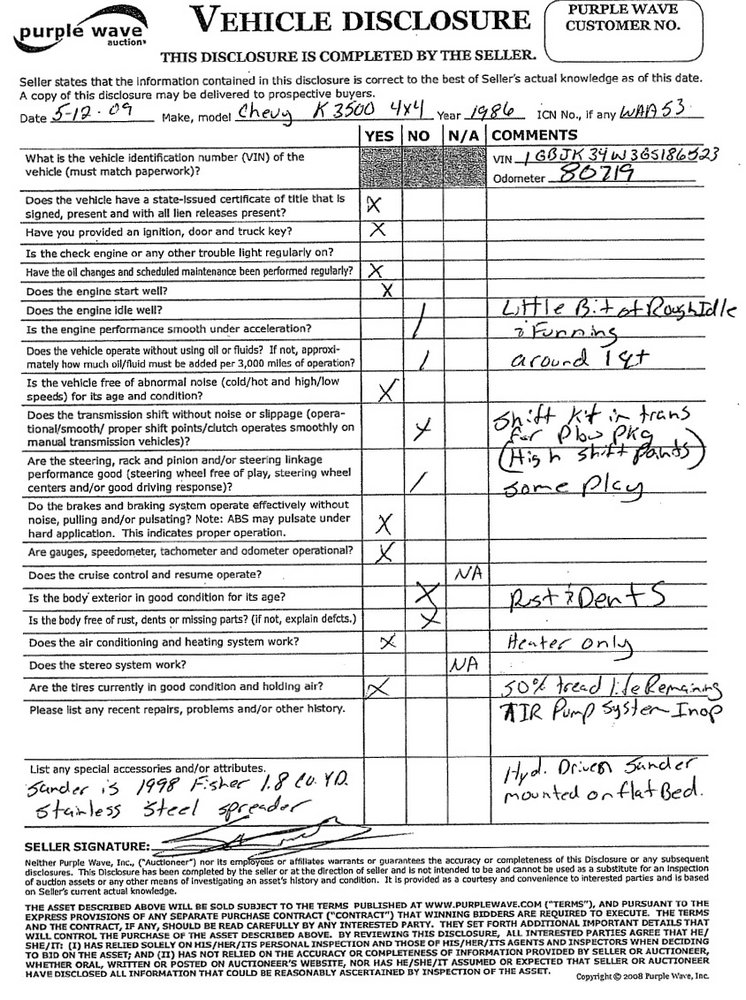 purple wave
auction
VEHICLE DISCLOSURE
PURPLE WAVE
CUSTOMER NO.
THIS DISCLOSURE IS COMPLETED BY THE SELLER.
Seller states that the information contained in this disclosure is correct to the best of Seller's actual knowledge as of this date.
A copy of this disclosure may be delivered to prospective buyers.
Date 5-12-09 Make, model Chevy K3500 4x4 Year 1986 ICN No., if any WAA53
YES NO N/A COMMENTS
What is the vehicle identification number (VIN) of the
vehicle (must match paperwork)?
VIN 1GBJK34W3GS186523
Odometer 80719
Does the vehicle have a state-issued certificate of title that is
signed, present and with all lien releases present? X
Have you provided an ignition, door and truck key? X
Is the check engine or any other trouble light regularly on?
Have the oil changes and scheduled maintenance been performed regularly? X
Does the engine start well? X
Does the engine idle well? Little Bit of Rough Idle
Is the engine performance smooth under acceleration? / & Running
Does the vehicle operate without using oil or fluids? If not, approxi-
mately how much oil/fluid must be added per 3,000 miles of operation? / around 1 qt
Is the vehicle free of abnormal noise (cold/hot and high/low
speeds) for its age and condition? X
Does the transmission shift without noise or slippage (opera-
tional/smooth/ proper shift points/clutch operates smoothly on
manual transmission vehicles)? X
Shift Kit in trans
for Plow PKG
(High shift points)
Are the steering, rack and pinion and/or steering linkage
performance good (steering wheel free of play, steering wheel
centers and/or good driving response)? / some play
Do the brakes and braking system operate effectively without
noise, pulling and/or pulsating? Note: ABS may pulsate under
hard application. This indicates proper operation. X
Are gauges, speedometer, tachometer and odometer operational? X
Does the cruise control and resume operate? NA
Is the body exterior in good condition for its age? X Rust & Dents
Is the body free of rust, dents or missing parts? (if not, explain defcts.) X
Does the air conditioning and heating system work? X Heater only
Does the stereo system work? NA
Are the tires currently in good condition and holding air? X 50% tread life Remaining
Please list any recent repairs, problems and/or other history. AIR Pump System Inop
List any special accessories and/or attributes.
Sander is 1998 Fisher 1.8 Cu. YD.
Stainless Steel spreader
Hyd. Driven Sander
mounted on flat Bed.
SELLER SIGNATURE:
Neither Purple Wave, Inc., ("Auctioneer") nor its employees or affiliates warrants or guarantees the accuracy or completeness of this Disclosure or any subsequent
disclosures. This Disclosure has been completed by the seller or at the direction of seller and is not intended to and cannot be used as a substitute for an inspection
of auction assets or any other means of investigating an asset's history and condition. It is provided as a courtesy and convenience to interested parties and is based
on Seller's current actual knowledge.
THE ASSET DESCRIBED ABOVE WILL BE SOLD SUBJECT TO THE TERMS PUBLISHED AT WWW.PURPLEWAVE.COM ("TERMS"), AND PURSUANT TO THE
EXPRESS PROVISIONS OF ANY SEPARATE PURCHASE CONTRACT ("CONTRACT") THAT WINNING BIDDERS ARE REQUIRED TO EXECUTE. THE TERMS
AND THE CONTRACT, IF ANY, SHOULD BE READ CAREFULLY BY ANY INTERESTED PARTY. THEY SET FORTH ADDITIONAL IMPORTANT DETAILS THAT
WILL CONTROL THE PURCHASE OF THE ASSET DESCRIBED ABOVE. BY REVIEWING THIS DISCLOSURE, ALL INTERESTED PARTIES AGREE THAT HE/
SHE/IT: (I) HAS RELIED SOLELY ON HIS/HER/ITS PERSONAL INSPECTION AND THOSE OF HIS/HER/ITS AGENTS AND INSPECTORS WHEN DECIDING
TO BID ON THE ASSET; AND (II) HAS NOT RELIED ON THE ACCURACY OR COMPLETENESS OF INFORMATION PROVIDED BY SELLER OR AUCTIONEER,
WHETHER ORAL, WRITTEN OR POSTED ON AUCTIONEER'S WEBSITE, NOR HAS HE/SHE/IT ASSUMED OR EXPECTED THAT SELLER OR AUCTIONEER
HAVE DISCLOSED ALL INFORMATION THAT COULD BE REASONABLY ASCERTAINED BY INSPECTION OF THE ASSET.
Copyright © 2008 Purple Wave, Inc.